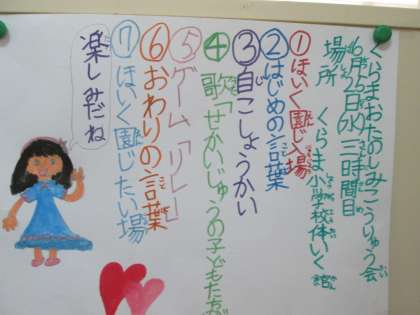 くらまおたのしみこうりゅう会
6月25日(水)三時間目
場所 くらま小学校体いく館
①ほいく園じ入場
②はじめの言葉
③自こしょうかい
④歌「せかいじゅうの子どもたちが
⑤ゲーム「リレー」
⑥おわりの言葉
⑦ほいく園じたい場
楽しみだね